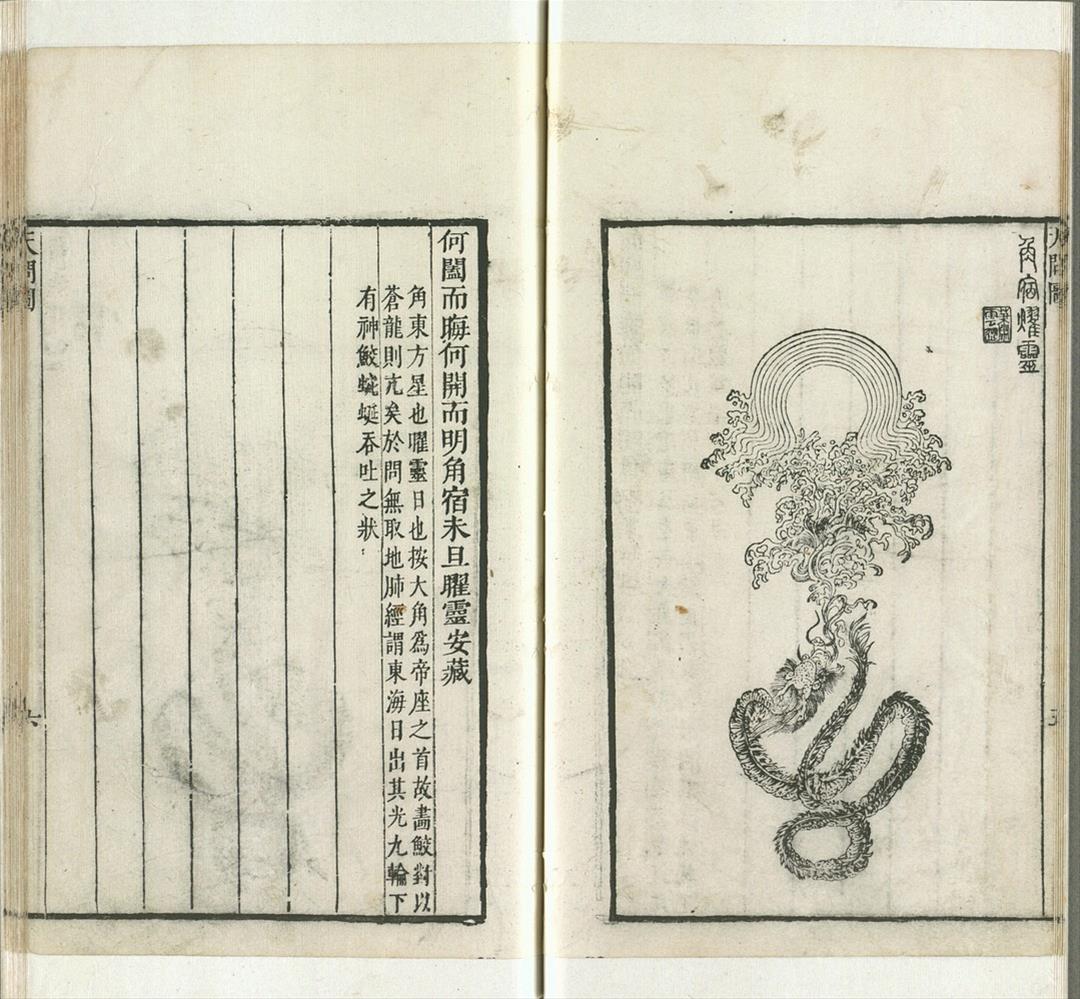 天問圖
角宿燿靈
五
何闔而晦何開而明角宿未旦曜靈安藏
角東方星也曜靈日也按大角爲帝座之首故畵鮫對以
蒼龍則亢矣於問無取地肺經謂東海日出其光九輪下
有神鮫蜿蜒吞吐之狀
天問圖
六